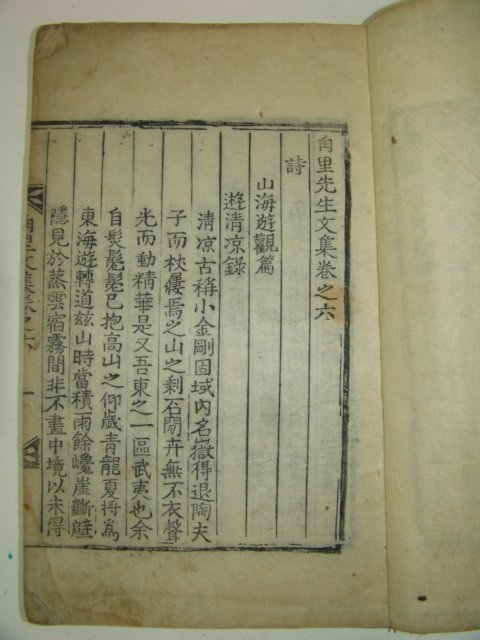 甪里先生文集卷之六
詩
山海遊觀篇
遊清凉錄
清凉古稱小金剛固域內名嶽得退陶夫
子而校僂焉之山之剩石閒卉無不衣聲
光而動精華是又吾東之一區武夷也余
自髮髧髦已抱高山之仰歲青龍夏將爲
東海遊轉道玆山時當積雨餘巉崖斷壁
隱見於蒸雲宿霧間非不畫中境以未得
里文集卷之六 一